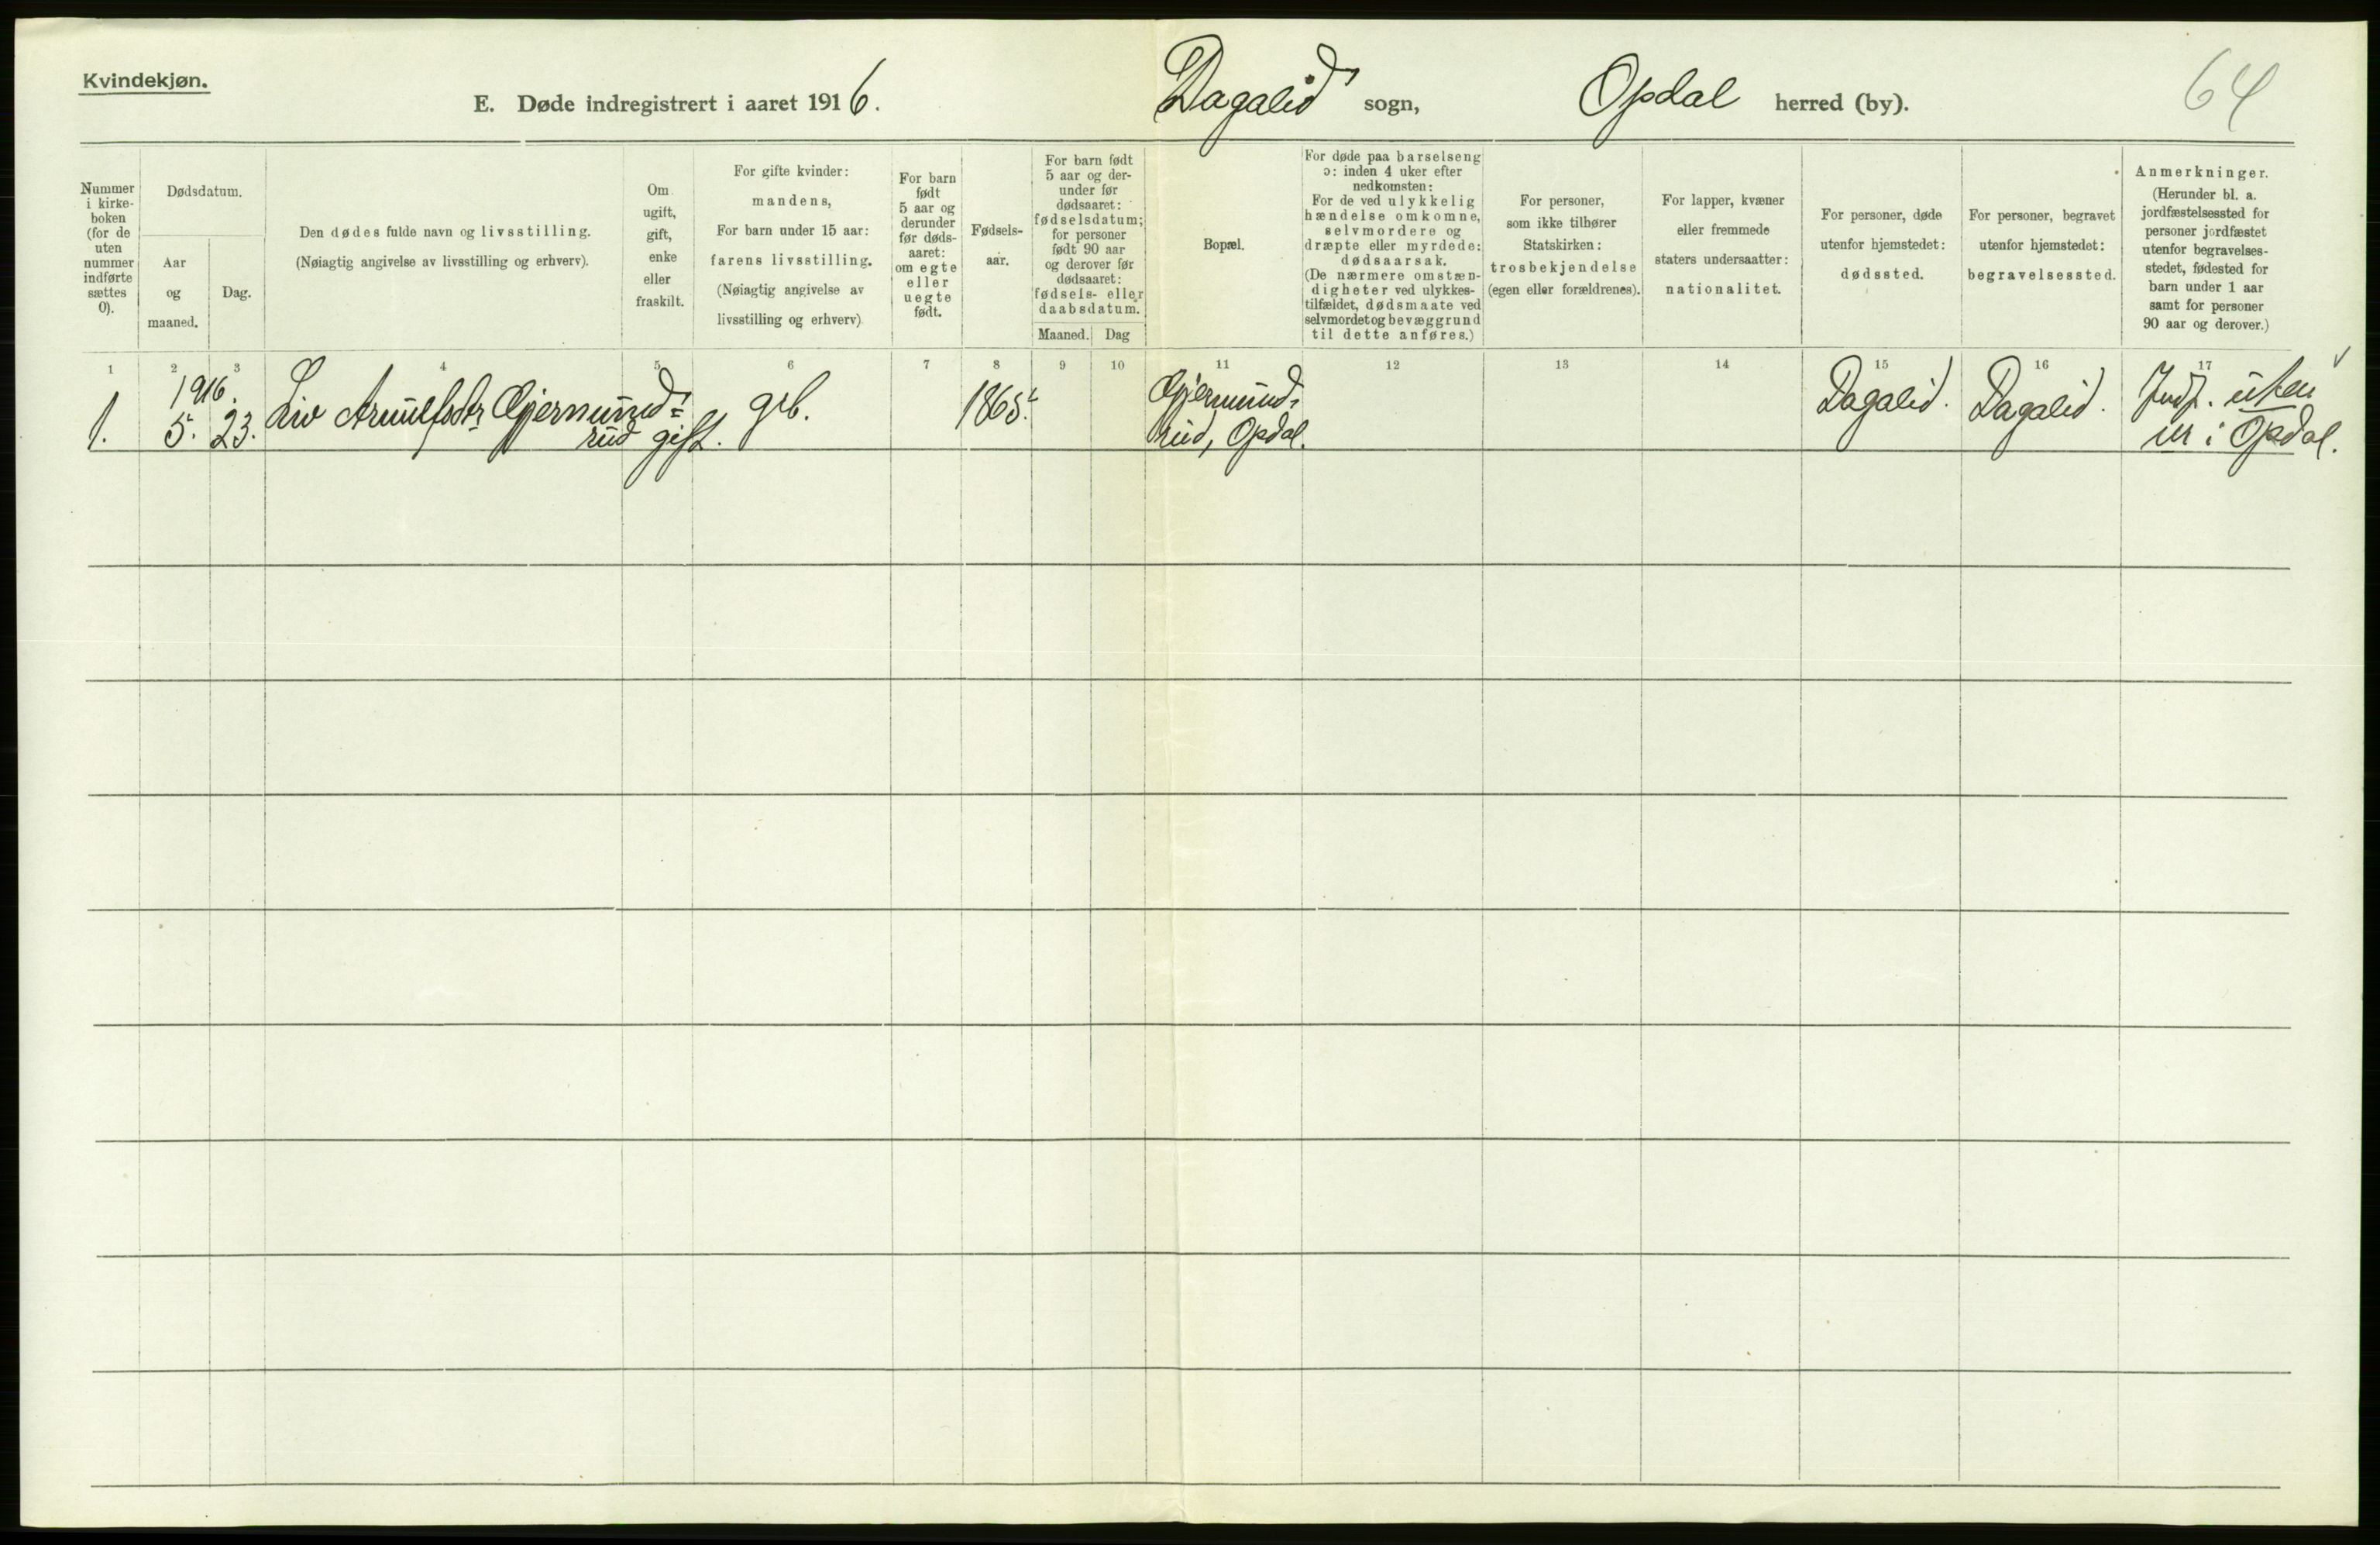 Kvindekjøn.
E. Døde indregistrert i aaret 1916.
Dagalid sogn, Opdal herred (by).
64
Nummer
i kirke-
boken
(for de
uten
nummer
indførte
sættes
0).
Dødsdatum.
Aar
og
maaned.
Dag.
Den dødes fulde navn og livsstilling.
(Nøiagtig angivelse av livsstilling og erhverv).
Om
ugift,
gift,
enke
eller
fraskilt.
For gifte kvinder:
mandens,
For barn under 15 aar:
farens livsstilling.
(Nøiagtig angivelse av
livsstilling og erhverv)
For barn
født
5 aar og
derunder
før døds-
aaret:
om egte
eller
uegte
født.
Fødsels-
aar.
For barn født
5 aar og der-
under før
dødsaaret:
fødselsdatum;
for personer
født 90 aar
og derover før
dødsaaret:
fødsels- eller
daabsdatum.
Maaned. Dag
Bopæl.
For døde paa barselseng
ɔ: inden 4 uker efter
nedkomsten:
For de ved ulykkelig
hændelse omkomne,
selvmordere og
dræpte eller myrdede:
dødsaarsak.
(De nærmere omstæn-
digheter ved ulykkes-
tilfældet, dødsmaate ved
selvmordet og bevæggrund
til dette anføres.)
For personer,
som ikke tilhører
Statskirken:
trosbekjendelse
(egen eller forældrenes).
For lapper, kvæner
eller fremmede
staters undersaatter:
nationalitet.
For personer, døde
utenfor hjemstedet:
dødssted.
For personer, begravet
utenfor hjemstedet:
begravelsessted.
Anmerkninger.
(Herunder bl. a.
jordfæstelsessted for
personer jordfæstet
utenfor begravelses-
stedet, fødested for
barn under 1 aar
samt for personer
90 aar og derover.)
1 2 3 4 5 6 7 8 9 10 11 12 13 14 15 16 17
1.
1916.
5. 23.
Liv Arnulfsdtr Gjermund=
rud
gift.
grb.
1865.
Gjermund=
rud, Opdal.
Dagalid.
Dagalid.
Indf. uten
nr i Opdal.